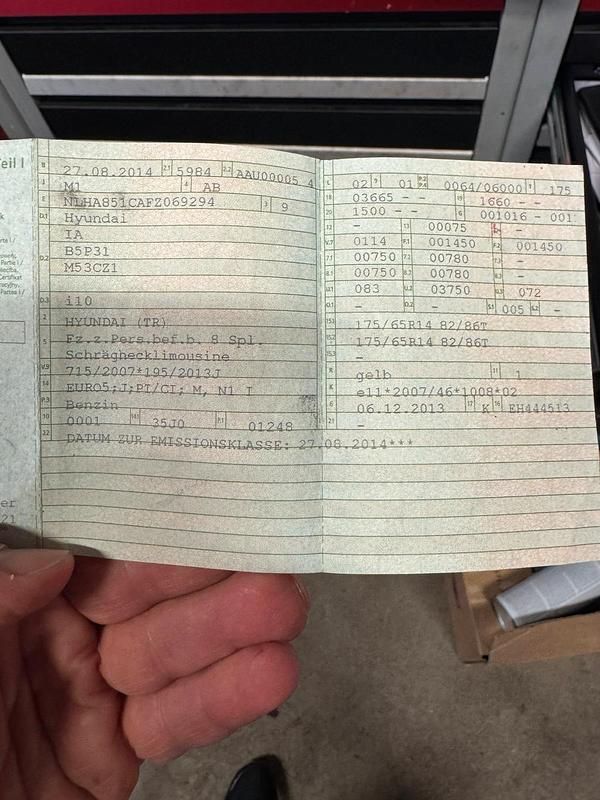 Teil I
27.08.2014 2.1 5984 2.2 AAU00005 4
J M1 4 AB
E NLHA851CAFZ069294 3 9
D.1 Hyundai
IA
D.2 B5P31
M53CZ1
D.3 i10
2 HYUNDAI (TR)
5 Fz.z.Pers.bef.b. 8 Spl.
Schräghecklimousine
V.9 715/2007*195/2013J
14 EURO5;J;PI/CI; M, N1 I
P.3 Benzin
10 0001 14.1 35J0 P.1 01248
22 DATUM ZUR EMISSIONSKLASSE: 27.08.2014***
L 02 9 01 P.2 P.4 0064/06000 T 175
18 03665 - - 19 1660 - -
20 1500 - - G 001016 - 001
12 - 13 00075 -
V.7 0114 F.1 001450 F.2 001450
7.1 00750 7.2 00780 -
8.1 00750 8.2 00780 -
U.1 083 U.2 03750 U.3 072
O.1 - O.2 - S.1 005 S.2 -
15.1 175/65R14 82/86T
15.2 175/65R14 82/86T
15.3 -
R gelb 11 1
K e11*2007/46*1008*02
6 06.12.2013 17 K 16 EH444513
21 -
er
21